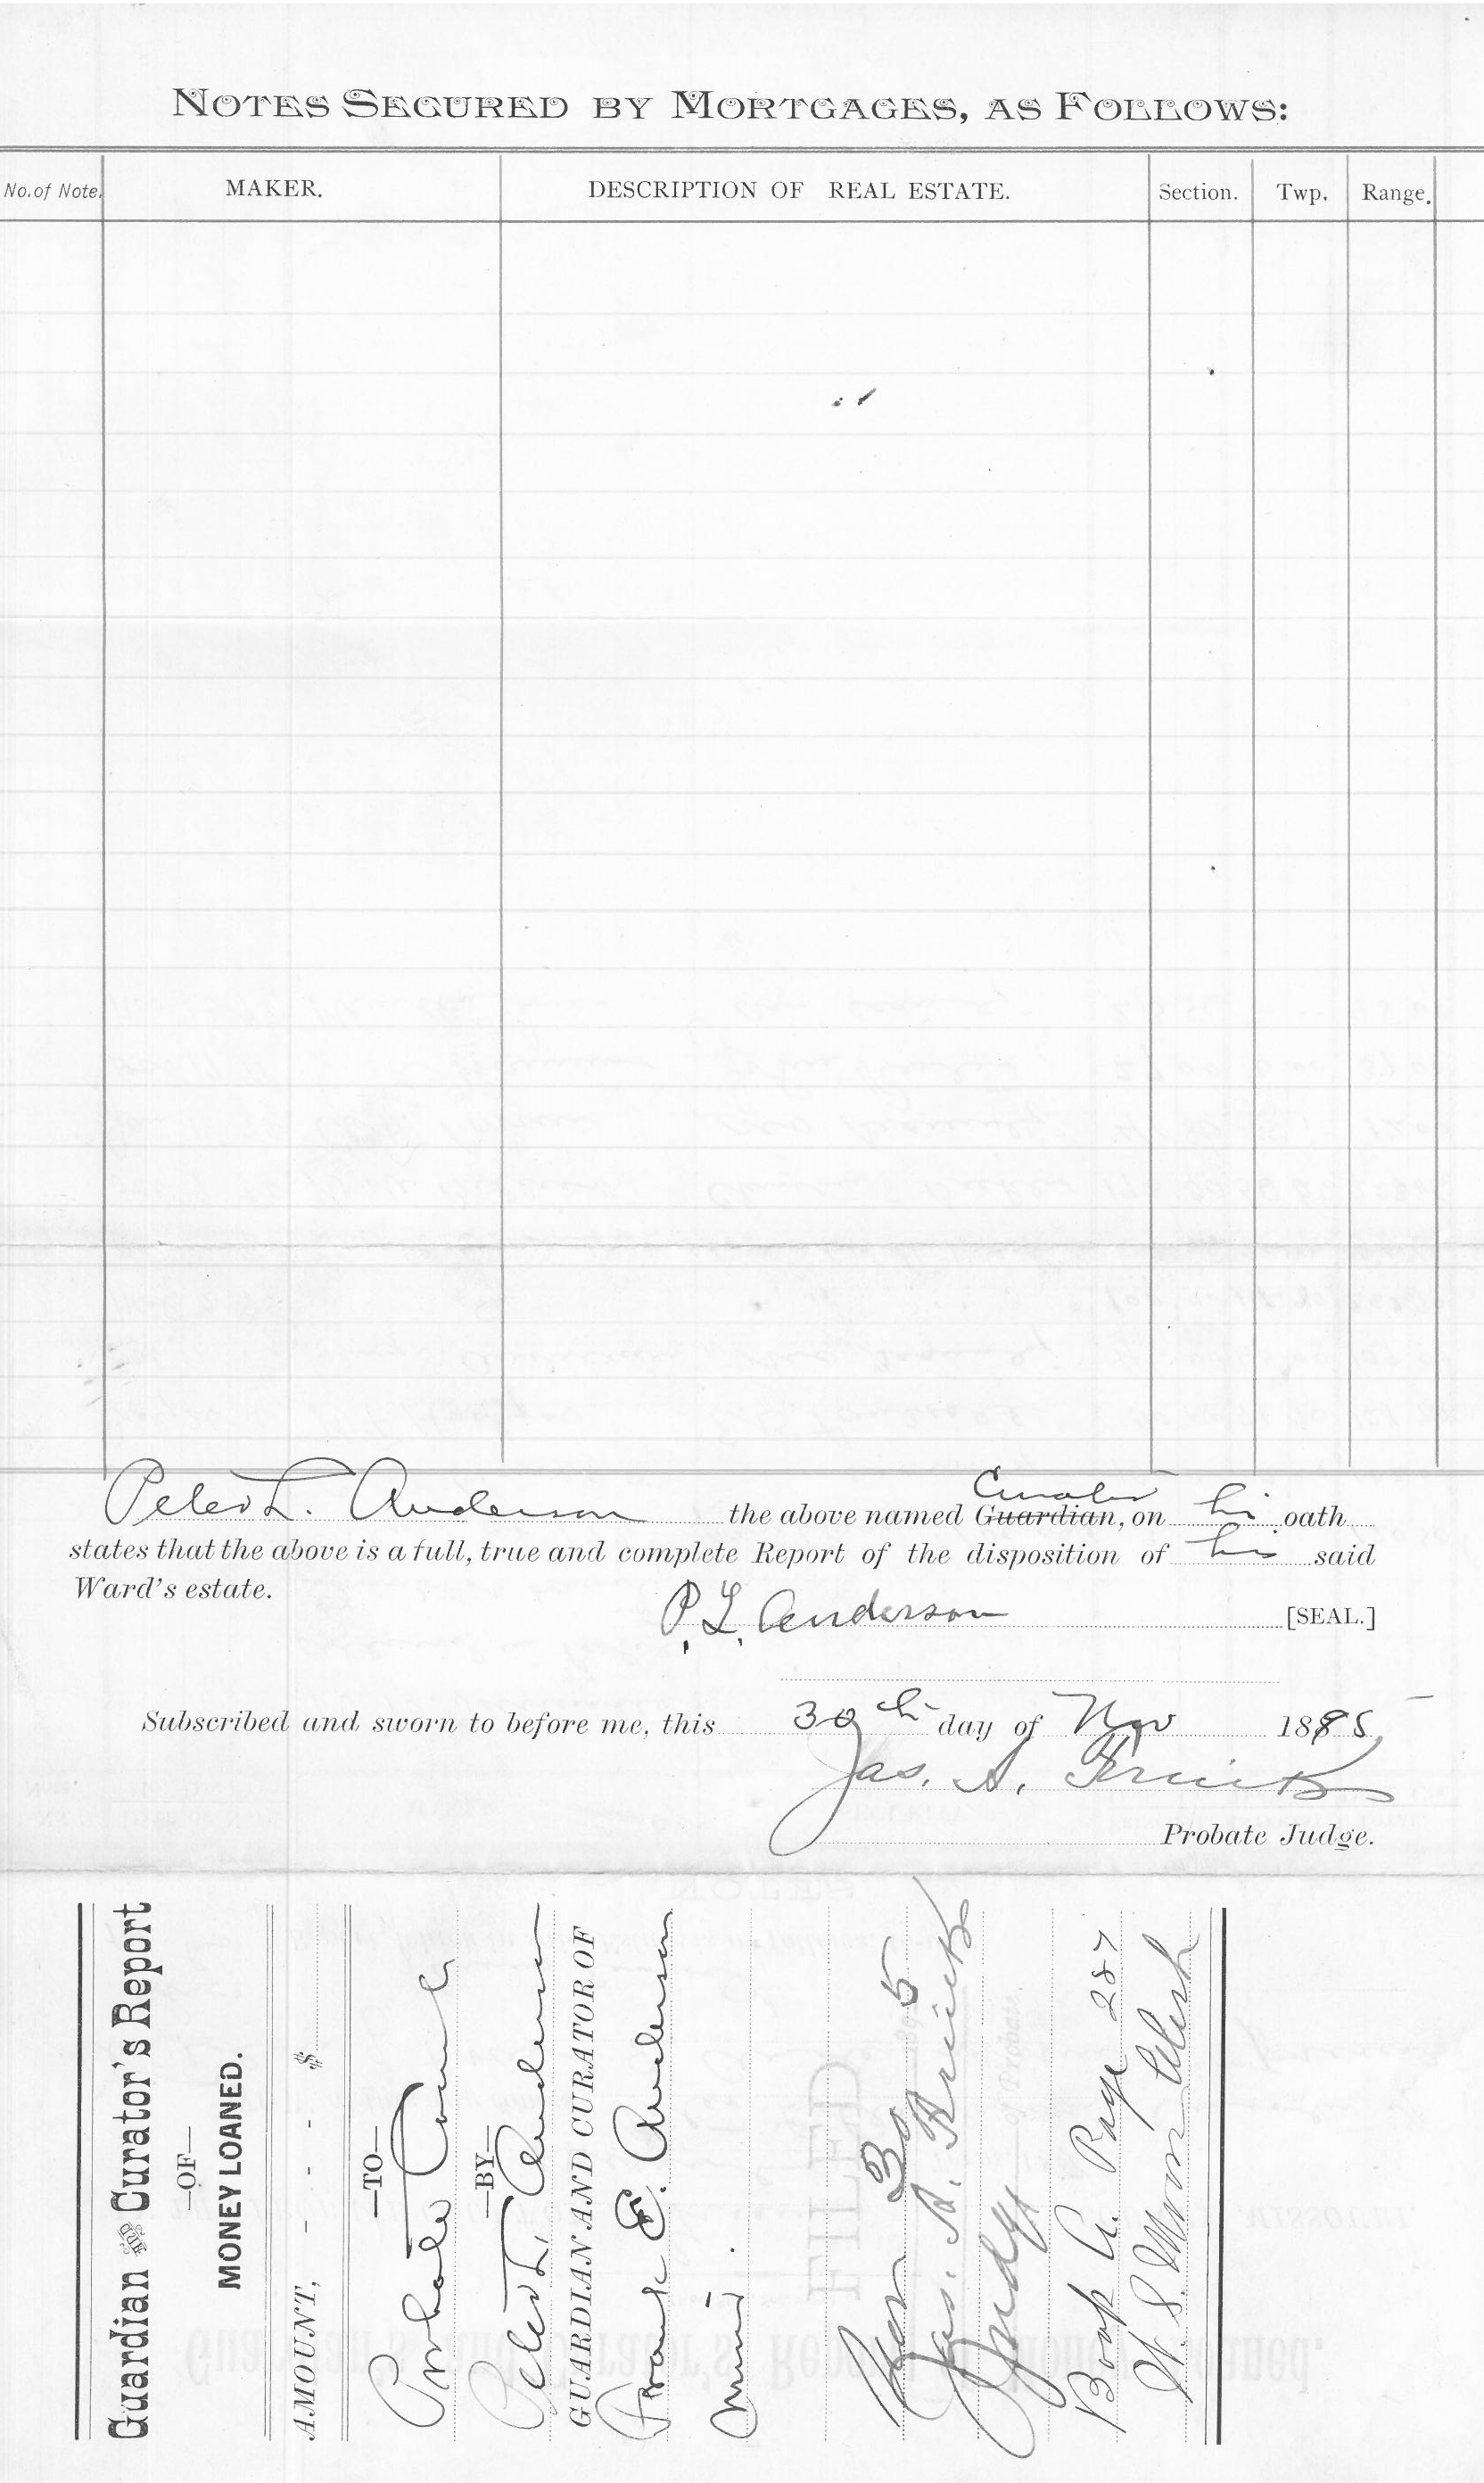 NOTES SECURED BY MORTGAGES, AS FOLLOWS:
No. of Note. MAKER. DESCRIPTION OF REAL ESTATE. Section. Twp. Range.
Curator
Peter L. Anderson the above named Guardian, on his oath
states that the above is a full, true and complete Report of the disposition of his said
Ward's estate.
P. L. Anderson [SEAL.]
Subscribed and sworn to before me, this 30th day of Nov 1895
Jas. A.
Probate Judge.
Guardian and Curator's Report
—OF—
MONEY LOANED.
AMOUNT, - - - $
—TO—
Probate Court
—BY—
Peter L. Anderson
GUARDIAN AND CURATOR OF
Frank E. Anderson
Minor.
FILED
Nov 30 1895
Jas. A.
Judge of Probate.
Book A. Page 287